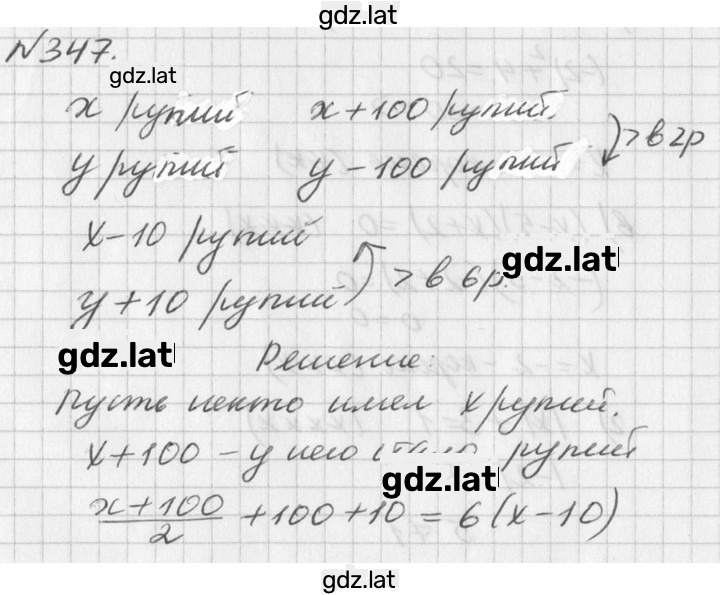 gdz.lat
№347.
gdz.lat
x рупий x+100 рупий.
>в 2р
y рупий y-100 рупий
x-10 рупий
gdz.lat
>в 6р.
y+10 рупий
gdz.lat
Решение:
Пусть некто имел x рупий.
x+100 - у него стало рупий
gdz.lat
(x+100)/2 +100+10=6(x-10)
gdz.lat